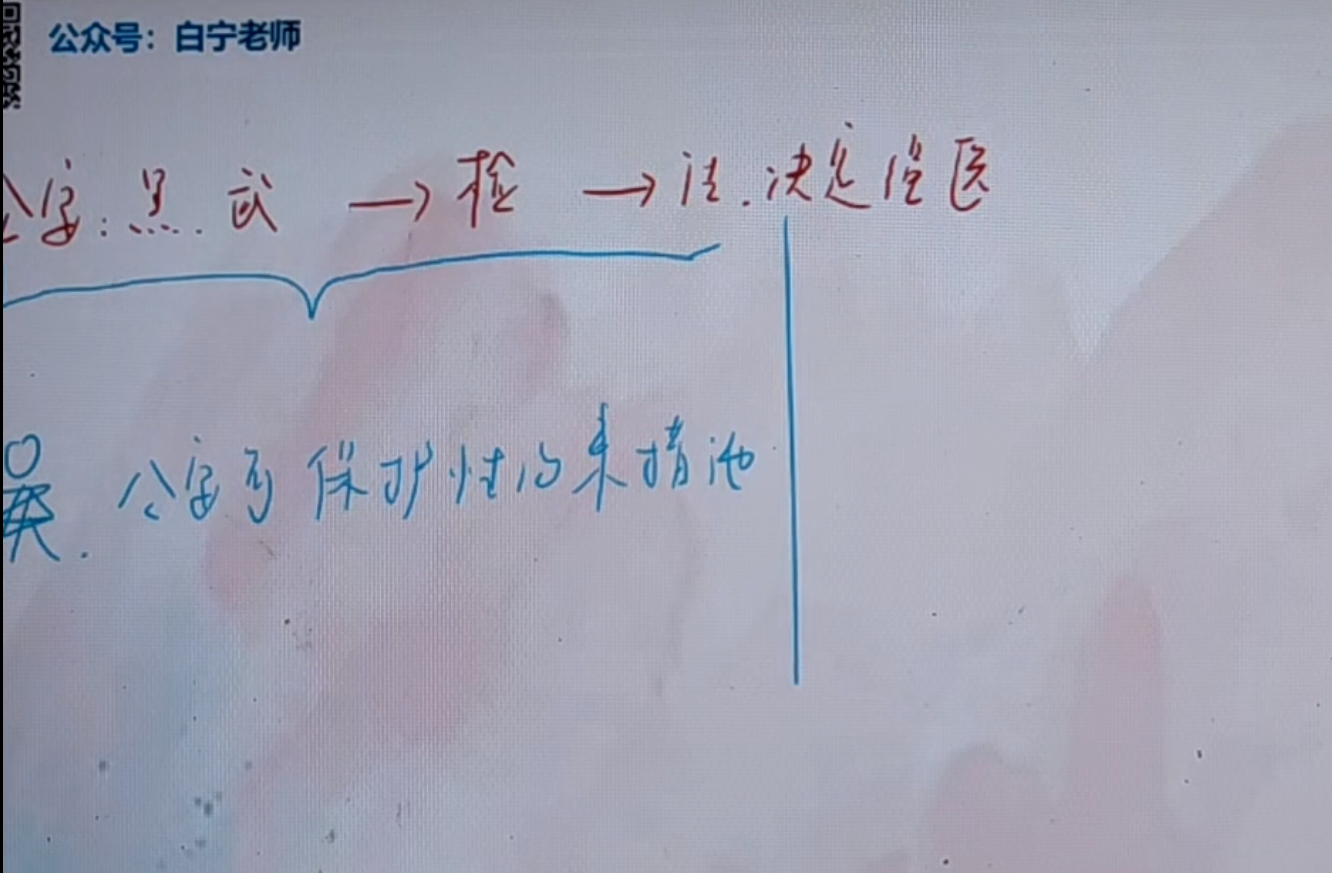 公众号：白宁老师
公安：黑.武 → 检 → 法.决定强医
吴. 公安可 保护性约束措施